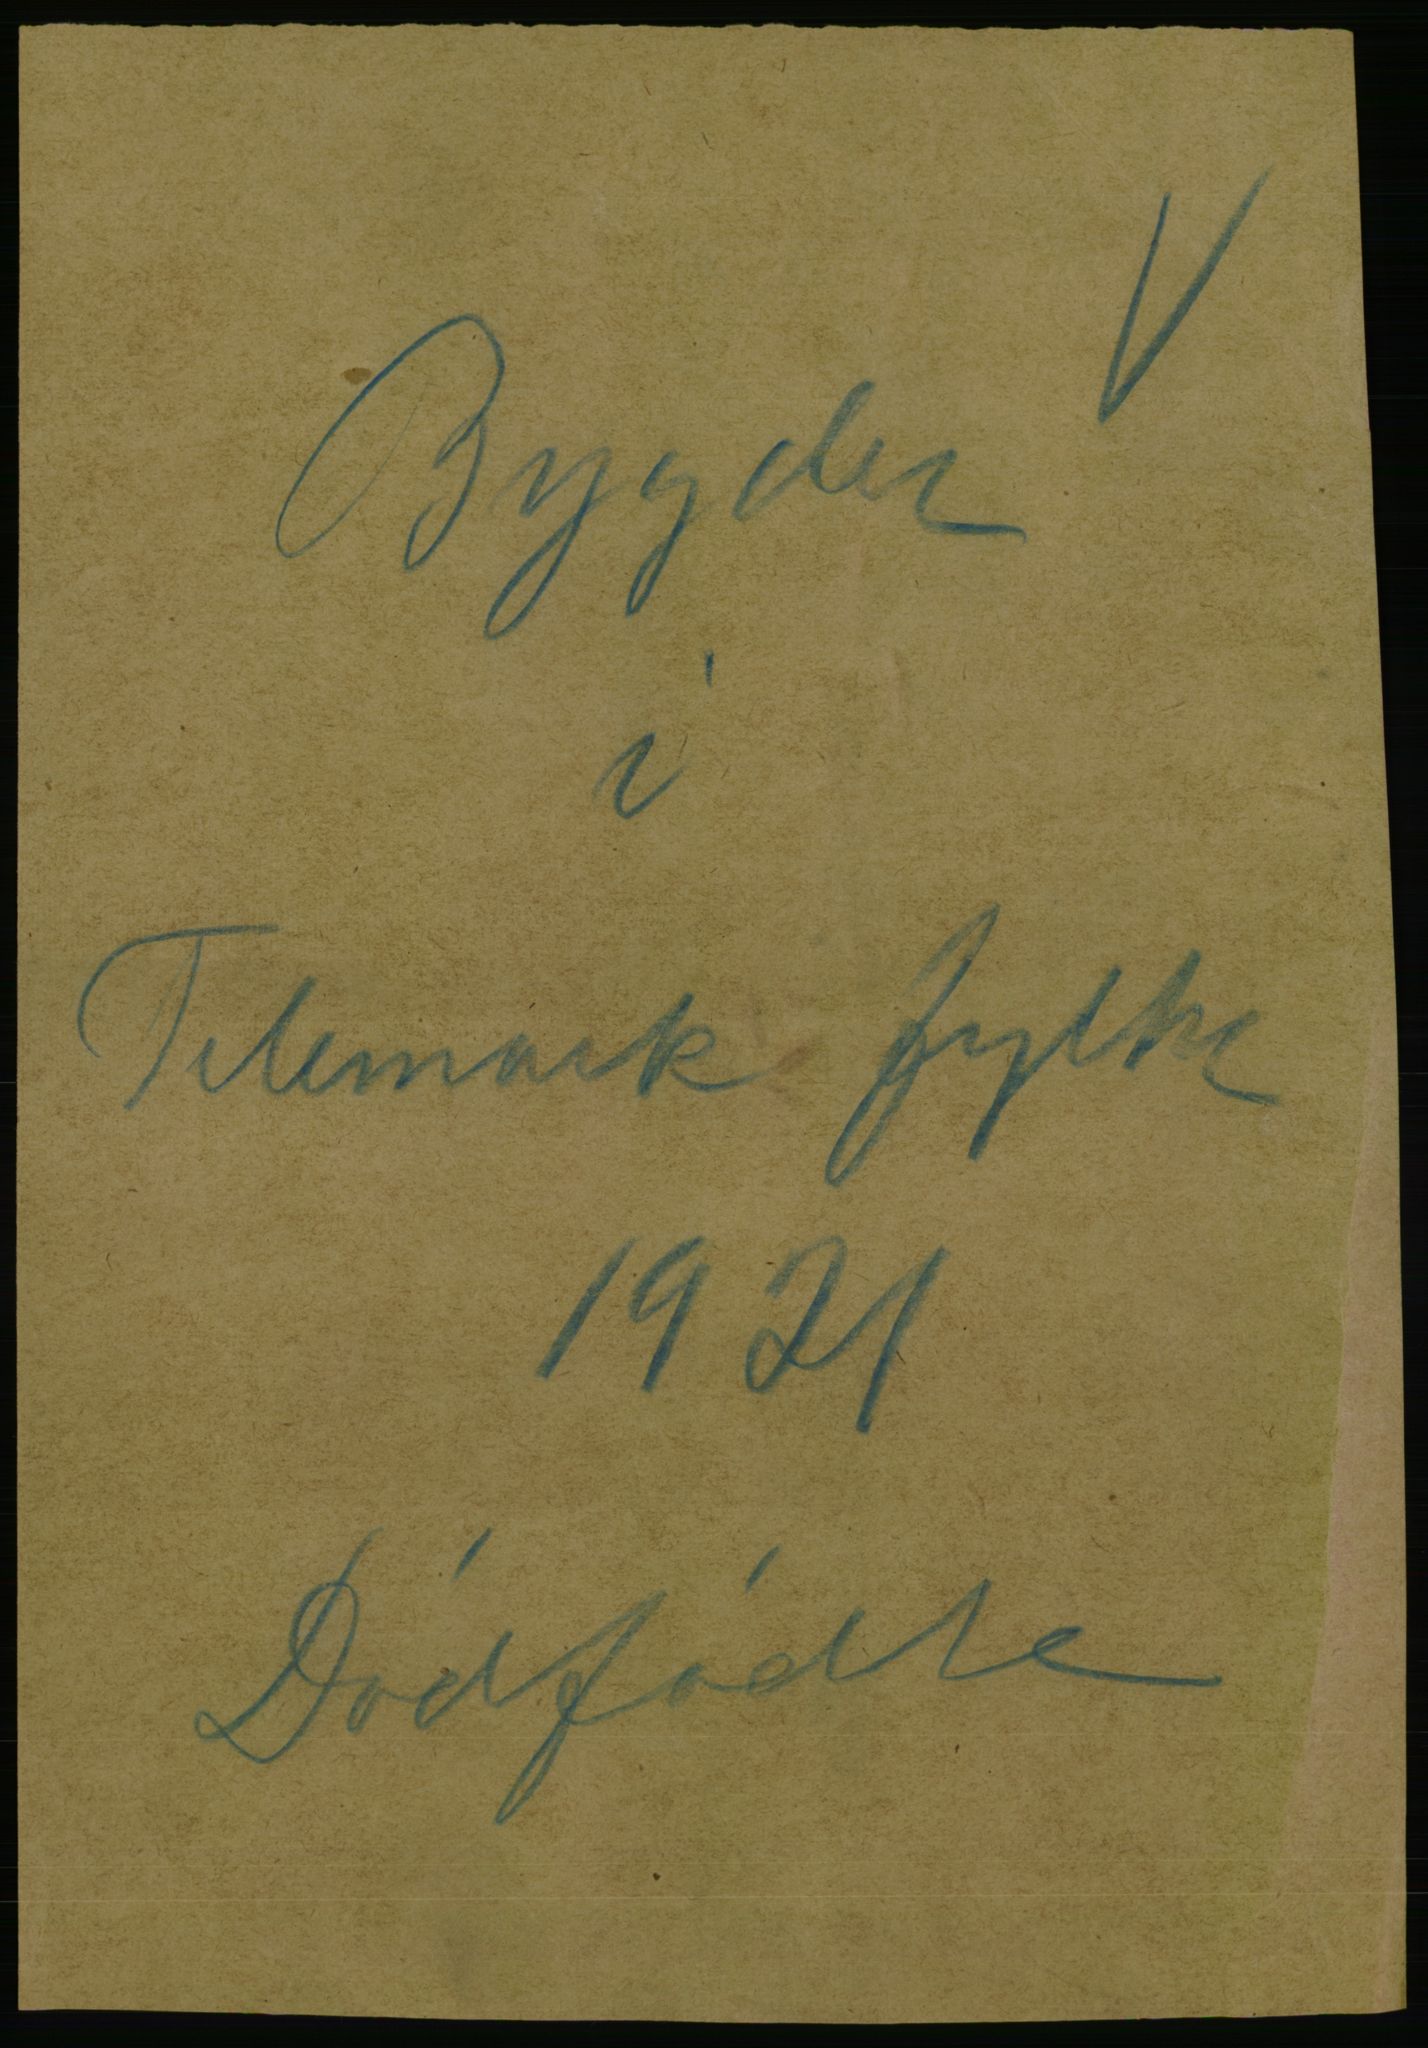 V
Bygder
i
Telemark fylke
1921
Dødfødte